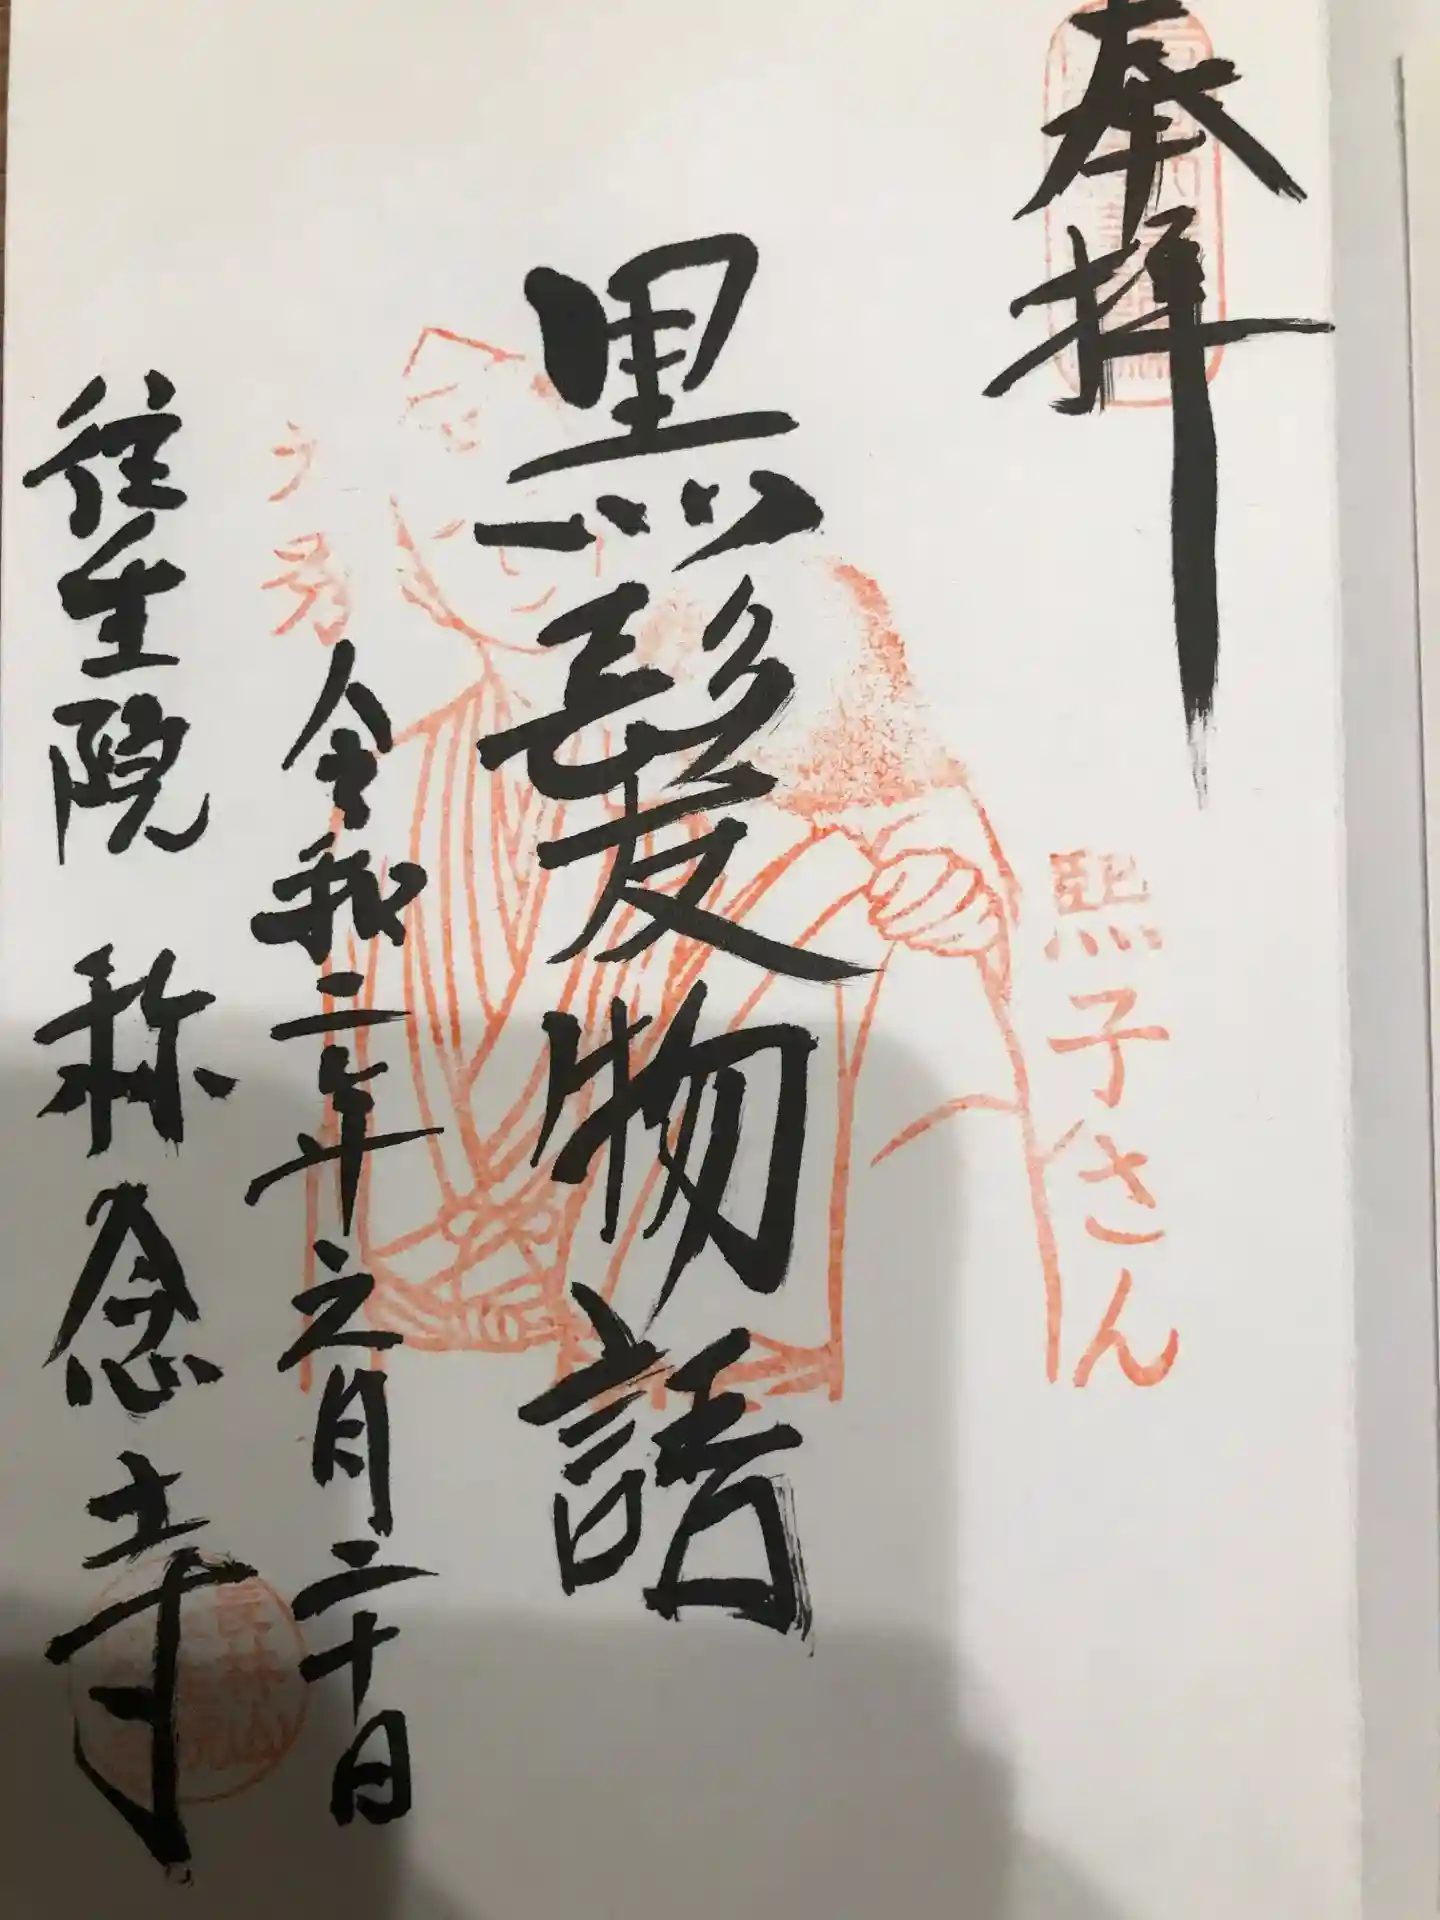 奉拝
熙子さん
黒髪物語
令和二年六月二十日
往生院 称念寺
長林山